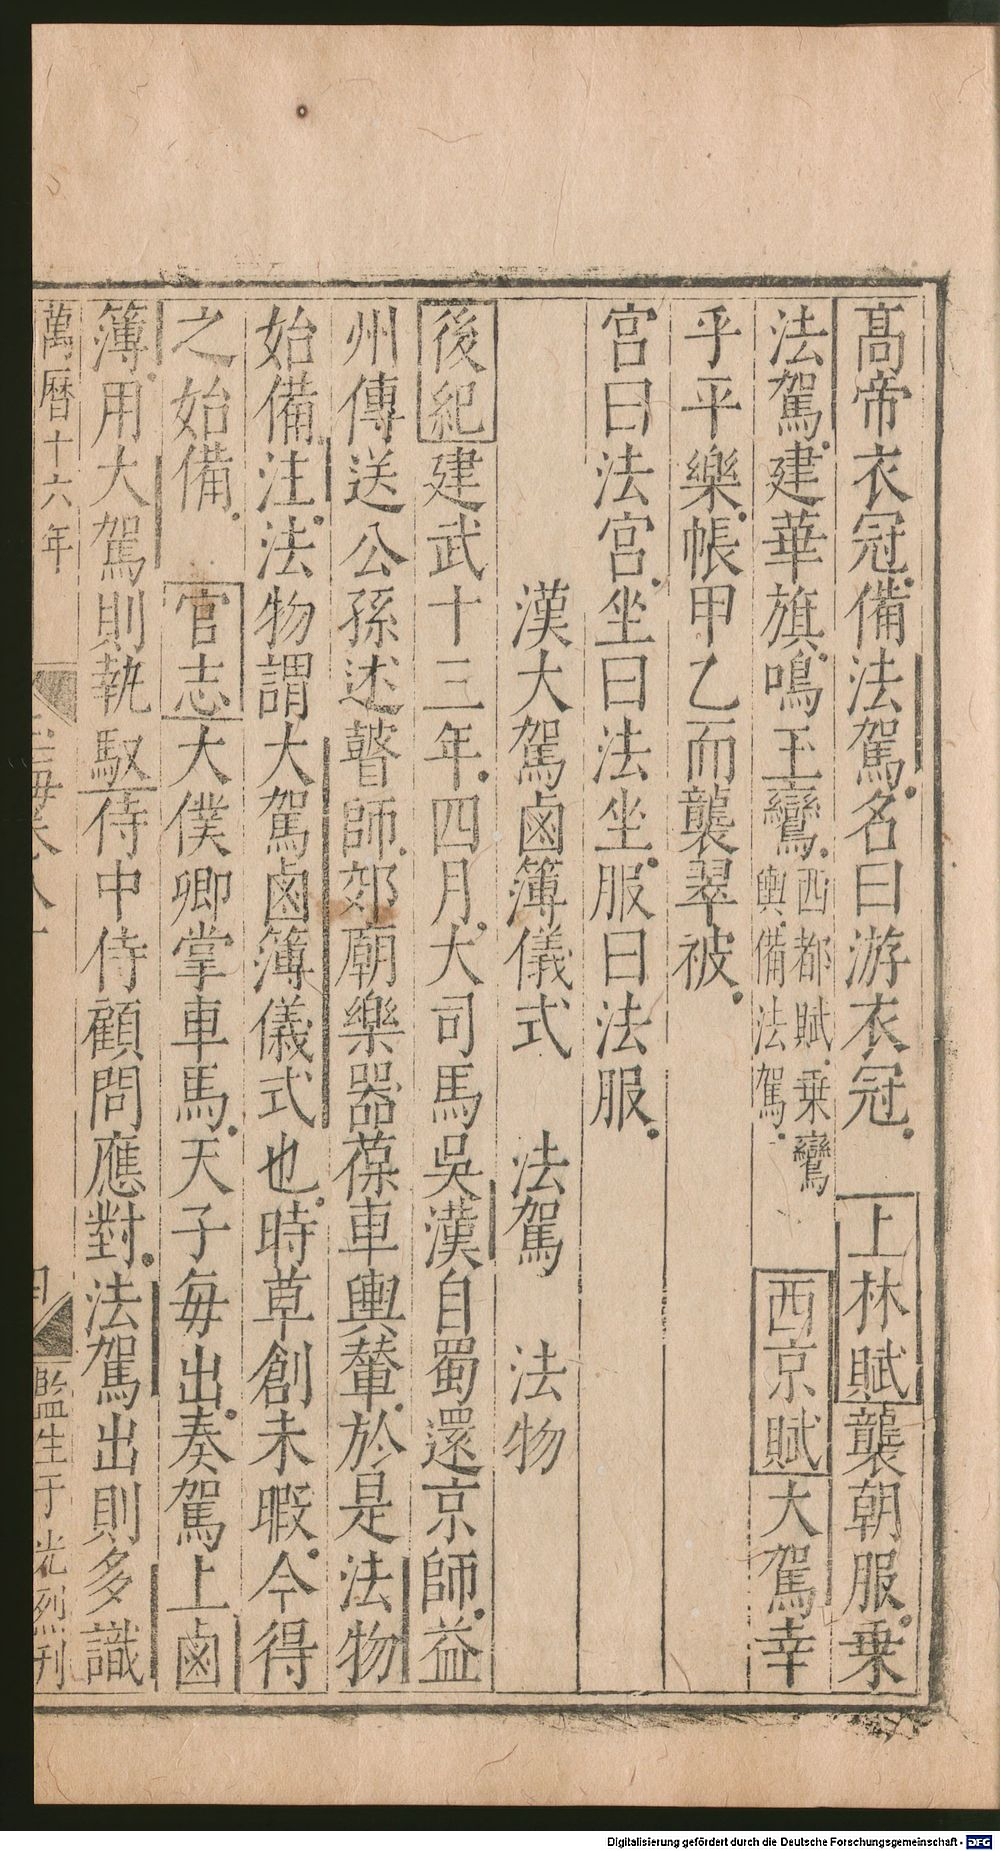 髙帝衣冠備法駕名曰游衣冠　上林賦襲朝服乗
法駕建華旗鳴玉鸞西都賦乗鸞輿備法駕　西京賦大駕幸
乎平樂帳甲乙而襲翠被
宫曰法宫坐曰法坐服曰法服
漢大駕鹵簿儀式　法駕　法物
後紀建武十三年四月大司馬吳漢自蜀還京師益
州傳送公孫述瞽師郊廟樂器葆車輿輦於是法物
始備注法物謂大駕鹵簿儀式也時草創未暇今得
之始備　官志大僕卿掌車馬天子每出奏駕上鹵
簿用大駕則執馭侍中侍顧問應對法駕出則多識
萬曆十六年
監生于光烈刊
Digitalisierung gefördert durch die Deutsche Forschungsgemeinschaft - DFG